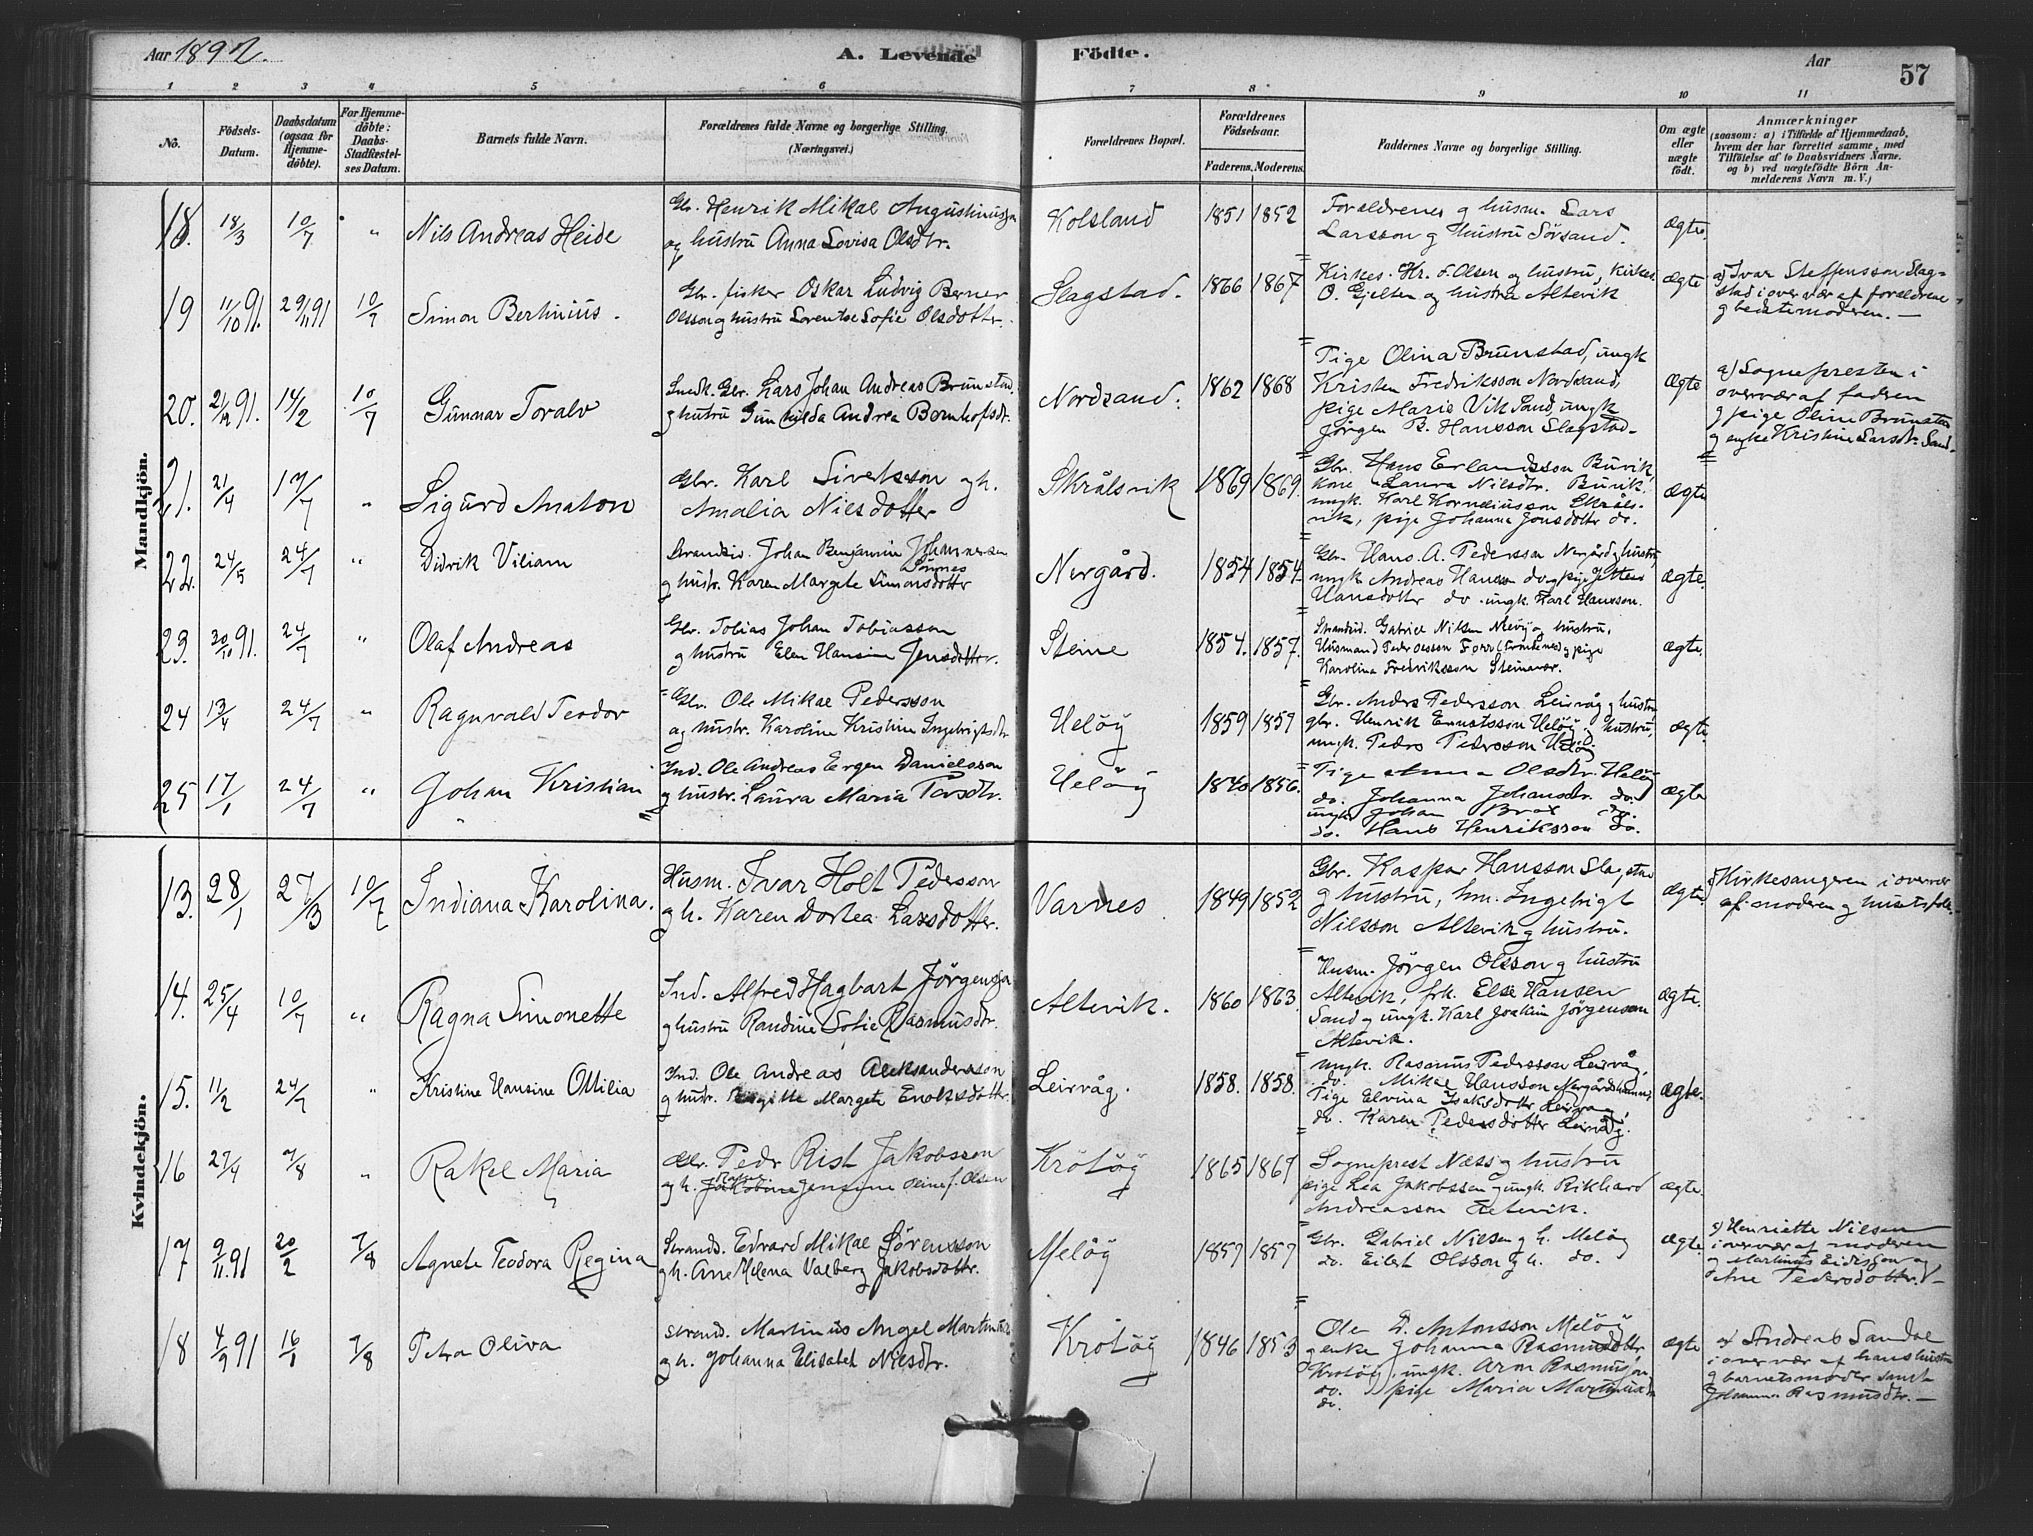 Aar 1892.
A. Levende Födte.
Aar
57
1 2 3 4 5 6 7 8 9 10 11
No.
Födsels-
Datum.
Daabsdatum
(ogsaa for
Hjemme-
döbte).
For Hjemme-
döbte:
Daabs-
Stadfæstel-
ses Datum.
Barnets fulde Navn.
Forældrenes fulde Navne og borgerlige Stilling.
(Næringsvei.)
Forældrenes Bopæl.
Forældrenes
Födselsaar.
Faderens. Moderens.
Faddernes Navne og borgerlige Stilling.
Om ægte
eller
uægte
födt.
Anmærkninger
(saasom: a) i Tilfælde af Hjemmedaab,
hvem der har forrettet samme, med
Tilföielse af to Daabsvidners Navne.
og b) ved uægtefödte Börn An-
melderens Navn m. V.)
Mandkjön.
18. 18/3 10/7 " Nils Andreas Heide
Gbr. Henrik Mikal Augustinusson
og hustru Anna Lovisa Olsdtr.
Kolsland 1851 1852
Forældrenes g husm. Lars
Larsson g hustru Sörsand.
ægte.
19 11/10 91. 29/11 91 10/7 Simon Bertinius.
Gbr. fisker Oskar Ludvig Berner
Olsson g hustru Lorentse Sofie Olsdotter.
Slagstad. 1866 1867
Kirkes. Hr. Olsen og hustru, Kirkes
O. Gjelten og hustru Altevik
ægte
a) Ivar Steffensson Slag-
stad i overvær af forældrene
g bedstemoderen. —
20. 21/12 91. 14/2 10/7 Gunnar Toralv
Smed. Gbr. Lars Johan Andreas Brunstad.
g hustru Gunhilda Andrea Bernhofsdtr.
Nordsand. 1862 1868
Pige Olina Brunstad, ungk
Kristen Fredriksson Nordsand,
pige Marie Vik Sand, ungk
Jörgen B. Hansson Slagstad.
ægte
a) Sognepresten i
overvær af faderen
g pige Oline Brunstad
g enke Kristine Larsdtr. Sand.
21. 21/4 17/7 " Sigurd Anaton
Gbr. Karl Sivertsson g h.
Amalia Nilsdotter
Skrålsvik 1869 1869.
Gbr. Hans Erlandsson Buvik,
kone Laura Nilsdtr. Buvik.
ungk. Karl Korneliusson Skråls-
vik, pige Johanna Jonsdotter do.
ægte
22. 24/5 24/7 " Didrik Viliam
Strandsid. Johan Benjamin Johannesen
Sönnes
g hustr. Karen Margrete Simonsdotter
Nergård. 1854 1854.
Gbr. Hans A. Pedersson Nergård g hustru,
ungk Andreas Hansen do g pige Jettine
Hansdotter do. ungk. Karl Hansson.
ægte.
23. 30/10 91. 24/7 " Olaf Andreas
Gbr. Tobias Johan Tobiasson
g hustru Elen Hansine Jensdotter.
Steine 1854. 1857.
Strandsid. Gabriel Nilsen Meöy g hustru.
Husmand Peder Olsson Forr g pige
Karolina Fredriksson Steinavær.
ægte.
24 13/4 24/7 " Ragnvald Teodor
Gbr. Ole Mikal Pedersson
og hustr. Karoline Kristine Ingebrigtsdtr.
Helöy 1859 1859
Gbr. Anders Pedersson Leirvåg g hustru
gbr. Henrik Ernstsson Helöy g hustru,
ungk. Peder Pedersson Helöy
ægte.
25 17/1 24/7 " Johan Kristian
Ind. Ole Andreas Ergen Danielsson
g hustr. Laura Maria Torsdtr.
Helöy 1840 1856.
Pige Anna Olsdtr. Helöy
do. Johanna Johansdtr. do.
ungk. Johan Brox do.
do. Hans Henriksson do.
ægte
Kvindekjön.
13. 28/1 27/3 10/7 Indiana Karolina.
Husm. Ivar Holt Pedersson
g h. Karen Dortea Larsdotter.
Varnes 1849 1852
Gbr. Kaspar Hansson Slagstad
g hustru, hm. Ingebrigt
Nilsson Altevik g hustru.
ægte.
a) Kirkesangeren i overvær
af moderen g husetsfolk.
14. 25/4 10/7 " Ragna Simonette
Ind. Alfred Hagbart Jörgensson
g hustru Randine Sofie Rasmusdtr.
Altevik. 1860 1863.
Husm. Jörgen Olsson g hustru
Altevik, frk. Else Hansen
Sand g ungk. Karl Joakim Jörgensen
Altevik.
ægte.
15. 11/2 24/7 " Kristine Hansine Ottilia
Ind. Ole Andreas Aleksandersson
g hustr. Margrete Enoksdotter.
Leirvåg. 1858. 1858.
ungk. Rasmus Pedersson Leirvåg,
do. Mikal Hansson Nergårdshamn,
Pige Elvina Isaksdotter Leirvåg,
do. Karen Pedersdotter Leirvåg.
ægte.
16 27/4 7/8 " Rakel Maria
Gbr. Peder Rist Jakobsson
og h. Jakobine Jensine f. Olsen
Krötöy 1865 1867
Sogneprest Næss g hustru
pige Lea Jakobssen g ungk. Rikhard
Andreasson Fetevik.
ægte.
17 9/11 91 20/2 7/8 Agnete Teodora Regina
Strands. Edvard Mikal Sörensson
g h. Ane Helena Valberg Jakobsdottr.
Melöy 1857 1857
Gbr. Gabriel Nilsen g h. Melöy
do. Eilert Olsson g h. do.
ægte
a) Henriette Nilsen
i overvær af moderen
g Martinus Eidissen og
Ane Pedersdotter. —
18 4/9 91 16/1 7/8 Petra Oliva
Strand. Martinus Angel Martinsson
g h. Johanna Elisabeth Nilsdtr.
Krötöy 1846 1853
Ole D. Antonsson Melöy
g enke Johanna Rasmusdottr
Krötöy, ungk. Aron Rasmusson
do. pige Maria Martinusdtr
do.
ægte
a) Andreas Sandal
i overvær af hans hustru
g barnets moder samt
Johanna Rasmusdtr. —